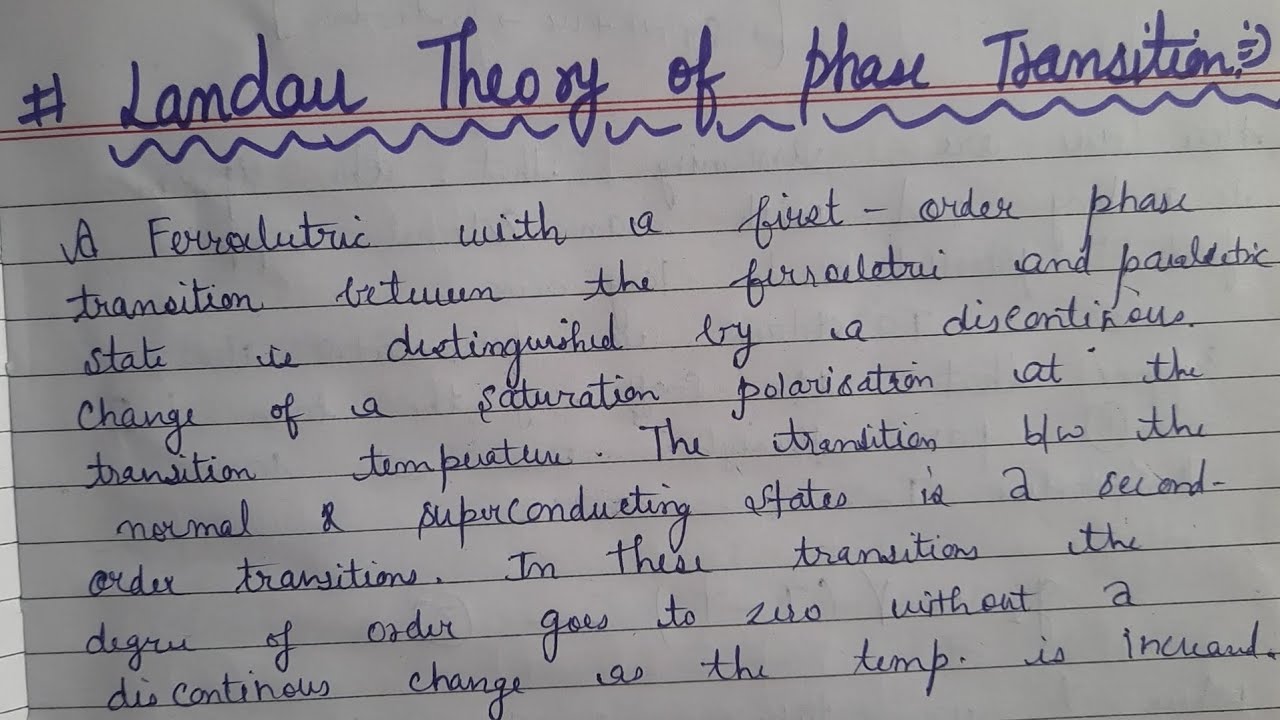 # Landau Theory of phase Transition:⇒
A Ferroelectric with a first - order phase
transition between the ferroelectric and paraelectric
state is distinguished by a discontinous.
change of a saturation polarisation at the
transition temperature. The transition b/w the
normal & superconducting states is a second-
order transitions. In these transitions the
degree of order goes to zero without a
discontinous change as the temp. is increased.